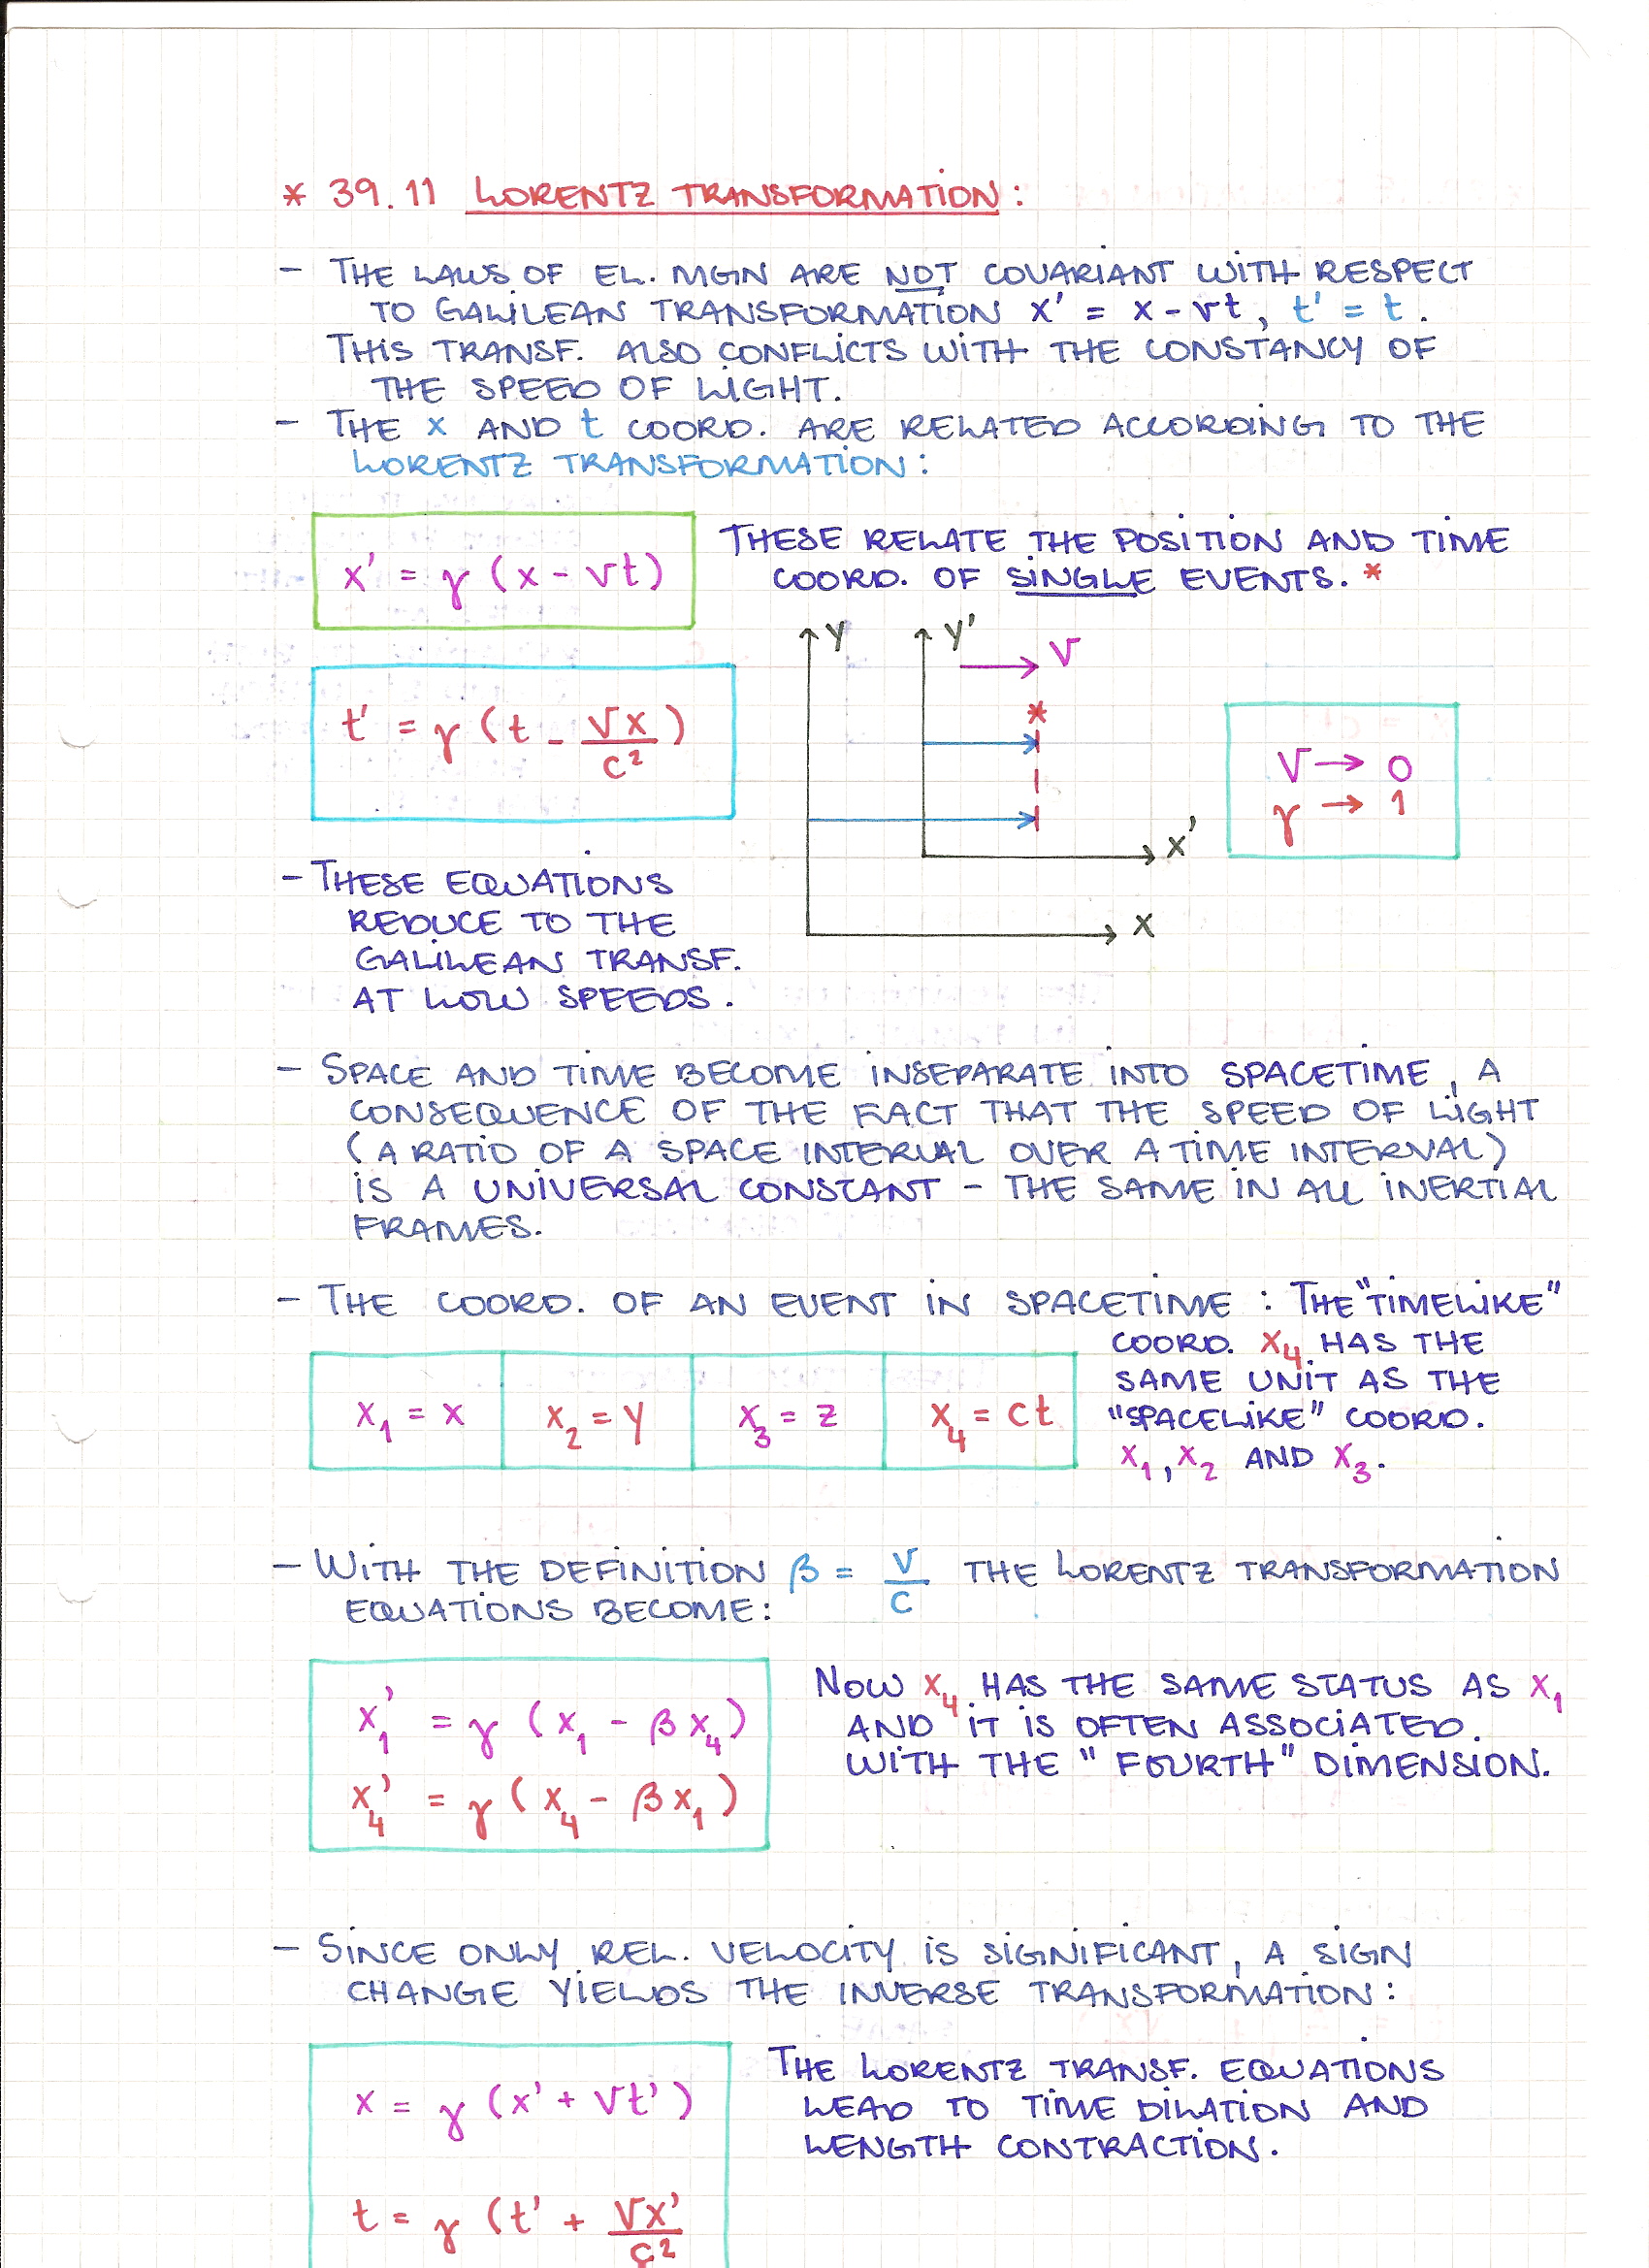 * 39.11 LORENTZ TRANSFORMATION:
- THE LAWS OF EL. MGN ARE NOT COVARIANT WITH RESPECT
TO GALILEAN TRANSFORMATION x' = x - vt, t' = t.
THIS TRANSF. ALSO CONFLICTS WITH THE CONSTANCY OF
THE SPEED OF LIGHT.
- THE x AND t COORD. ARE RELATED ACCORDING TO THE
LORENTZ TRANSFORMATION:
x' = γ (x - vt)
THESE RELATE THE POSITION AND TIME
COORD. OF SINGLE EVENTS. *
t' = γ (t - vx/c²)
y
y'
v
*
x'
x
v → 0
γ → 1
- THESE EQUATIONS
REDUCE TO THE
GALILEAN TRANSF.
AT LOW SPEEDS.
- SPACE AND TIME BECOME INSEPARATE INTO SPACETIME, A
CONSEQUENCE OF THE FACT THAT THE SPEED OF LIGHT
(A RATIO OF A SPACE INTERVAL OVER A TIME INTERVAL)
IS A UNIVERSAL CONSTANT - THE SAME IN ALL INERTIAL
FRAMES.
- THE COORD. OF AN EVENT IN SPACETIME: THE "TIMELIKE"
COORD. x₄ HAS THE
SAME UNIT AS THE
"SPACELIKE" COORD.
x₁, x₂ AND x₃.
x₁ = x x₂ = y x₃ = z x₄ = ct
- WITH THE DEFINITION β = v/c THE LORENTZ TRANSFORMATION
EQUATIONS BECOME:
x₁' = γ (x₁ - βx₄)
x₄' = γ (x₄ - βx₁)
NOW x₄ HAS THE SAME STATUS AS x₁
AND IT IS OFTEN ASSOCIATED
WITH THE "FOURTH" DIMENSION.
- SINCE ONLY REL. VELOCITY IS SIGNIFICANT, A SIGN
CHANGE YIELDS THE INVERSE TRANSFORMATION:
x = γ (x' + vt')
t = γ (t' + vx'/c²
THE LORENTZ TRANSF. EQUATIONS
LEAD TO TIME DILATION AND
LENGTH CONTRACTION.